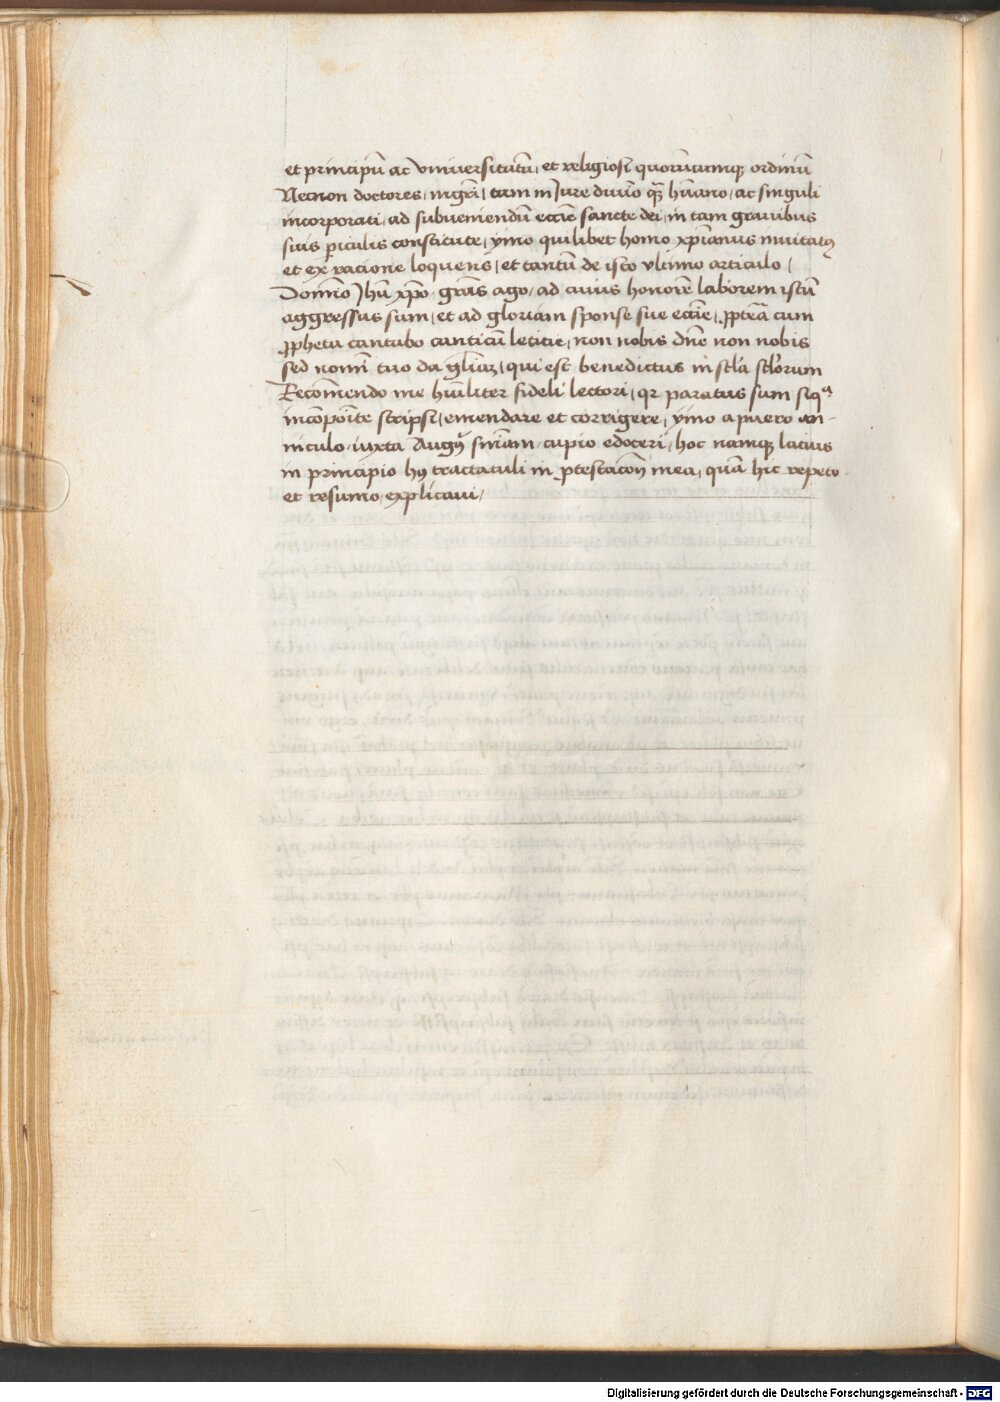 et principū ac vniuersitatū, et religiosi quorūcumqꝫ ordinū
Necnon doctores, mgrī, tam in Jure diuīo qᷓꝫ hūano, ac singuli
incorporati, ad subueniendū eccīe sancte dei, in tam grauibus
suis ꝑiculis constitute, ymo quilibet homo xp̄ianus inuitatꝰ
et ex racione loquens, et tantū de isto vltimo articulo,
Domīno Jhū xp̄o gras̄ ago, ad cuius honorē laborem istū
aggressus sum, et ad gloriam sponse sue eccīe, ꝓpterā cum
ꝓpheta cantabo canticū leticie, non nobis dn̄e non nobis
sed nomī tuo da glīaꝫ, qui est benedictus in scl̄a scl̄orum
Recom̄endo me hūiliter fideli lectori, qꝛ paratus sum siqᵃ
incōpoīte scripsi, emendare et corrigere, ymo a puero an-
niculo, iuxta Augꝰ sniām, cupio edoceri, hoc namqꝫ lacius
in principio hꝰ tractatuli in ꝓtestacōn̄ mea, quā hic repeto
et resumo, explicaui,
Digitalisierung gefördert durch die Deutsche Forschungsgemeinschaft - DFG